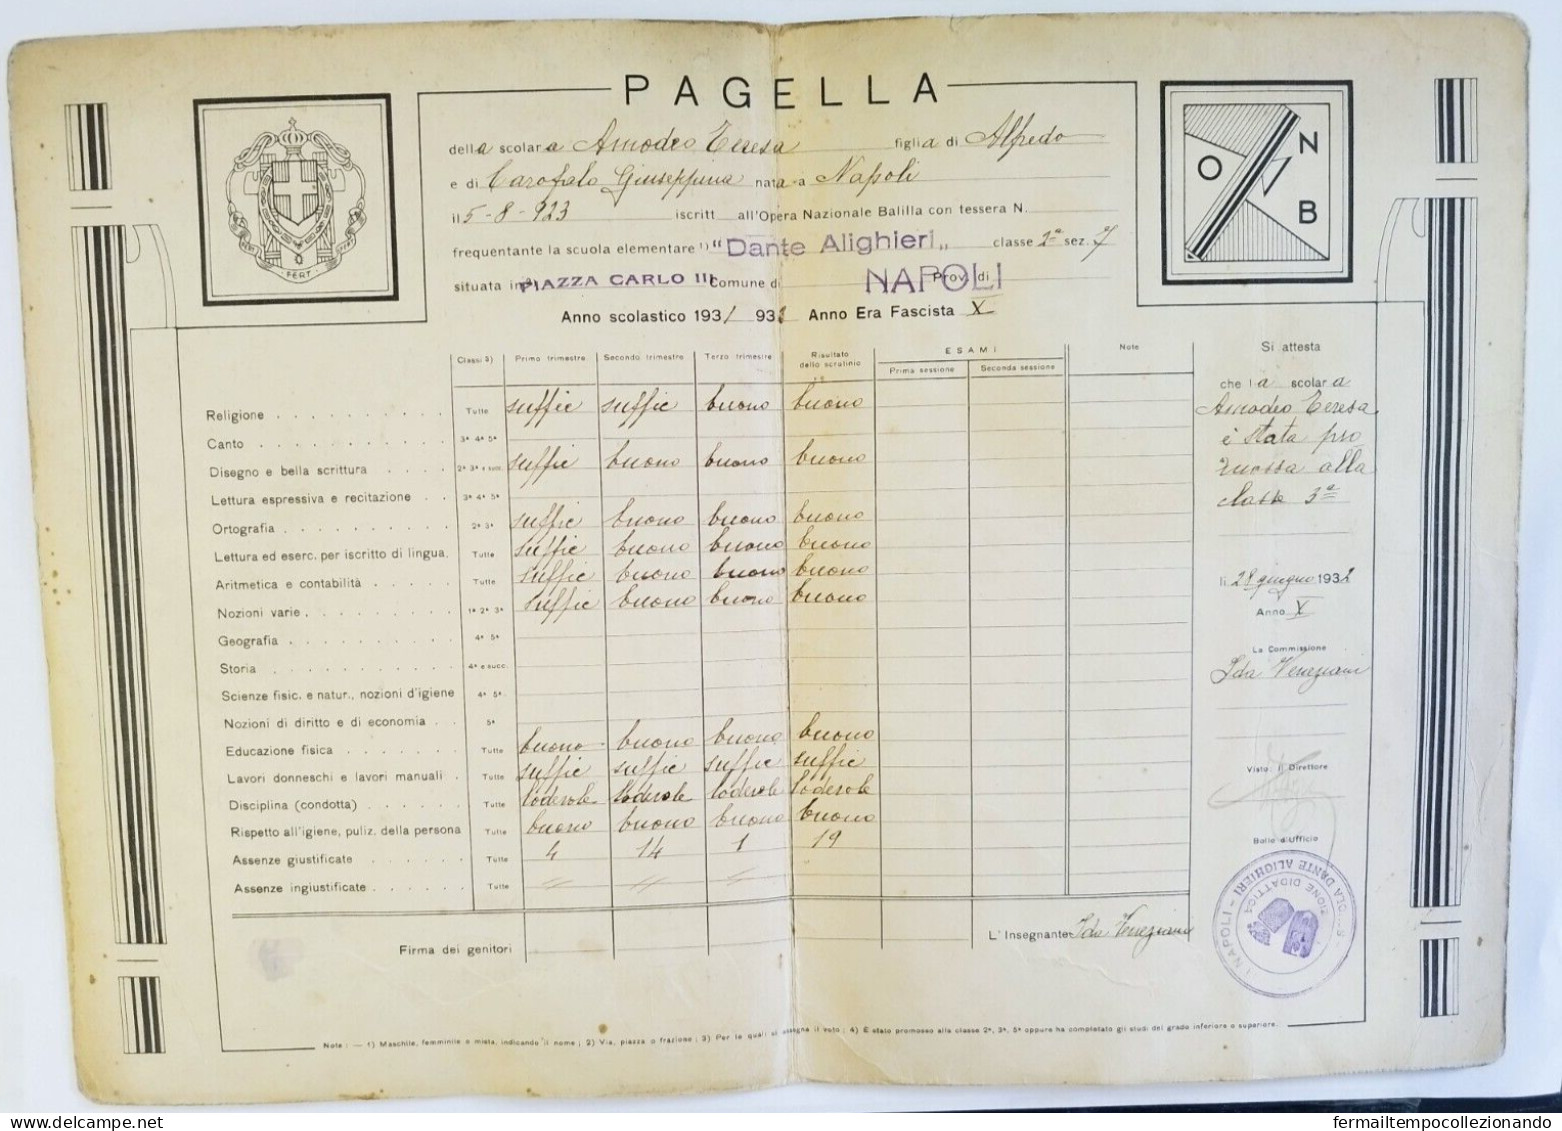 PAGELLA
FERT
O N B
della scolara Amodeo Teresa figlia di Alfredo
e di Carofalo Giuseppina nata a Napoli
il 5-8-923 iscritt all'Opera Nazionale Balilla con tessera N.
frequentante la scuola elementare 1) "Dante Alighieri" classe 2ª sez. 7
situata in 2) PIAZZA CARLO III Comune di NAPOLI Prov. di
Anno scolastico 1931 932 Anno Era Fascista X
Classi 3) Primo trimestre Secondo trimestre Terzo trimestre Risultato dello scrutinio ESAMI Prima sessione Seconda sessione Note
Religione Tutte suffic suffic buono buono
Canto 3ª 4ª 5ª
Disegno e bella scrittura 2ª 3ª e succ. suffic buono buono buono
Lettura espressiva e recitazione 3ª 4ª 5ª
Ortografia 2ª 3ª suffic buono buono buono
Lettura ed eserc. per iscritto di lingua. Tutte suffic buono buono buono
Aritmetica e contabilità Tutte suffic buono buono buono
Nozioni varie 1ª 2ª 3ª suffic buono buono buono
Geografia 4ª 5ª
Storia 4ª e succ.
Scienze fisic. e natur., nozioni d'igiene 4ª 5ª
Nozioni di diritto e di economia 5ª
Educazione fisica Tutte buono buono buono buono
Lavori donneschi e lavori manuali Tutte suffic suffic suffic suffic
Disciplina (condotta) Tutte lodevole lodevole lodevole lodevole
Rispetto all'igiene, puliz. della persona Tutte buono buono buono buono
Assenze giustificate Tutte 4 14 1 19
Assenze ingiustificate Tutte
Firma dei genitori
L'Insegnante Ida Veneziani
Si attesta
che la scolara
Amodeo Teresa
è stata pro
mossa alla
classe 3ª
li 28 giugno 1932
Anno X
La Commissione
Ida Veneziani
Visto: Il Direttore
Bollo d'Ufficio
DANTE ALIGHIERI - NAPOLI
DIDATTICA
Note: — 1) Maschile, femminile o mista, indicando il nome; 2) Via, piazza o frazione; 3) Per le quali si assegna il voto; 4) È stato promosso alla classe 2ª, 3ª, 5ª oppure ha completato gli studi del grado inferiore o superiore.
fermailtempocollezionando